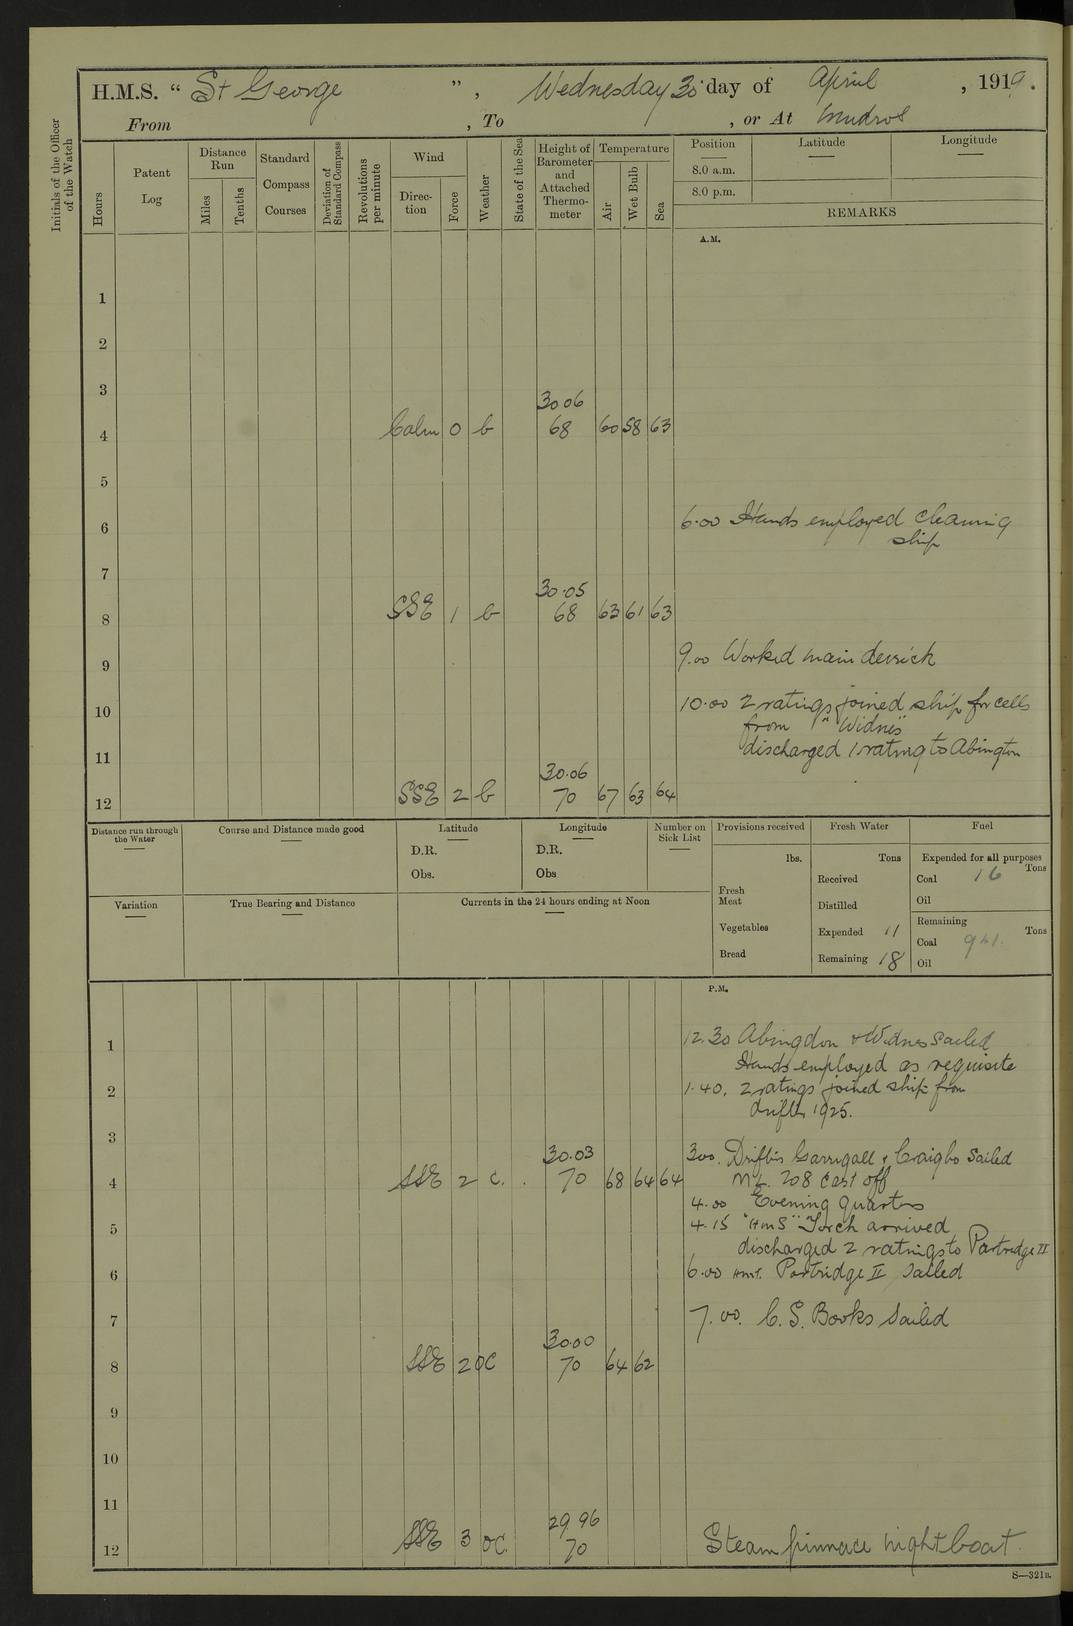 H.M.S. “ St George ” , Wednesday 30 day of April , 1919.
From , To , or At Mudros
Initials of the Officer of the Watch
Hours
Patent Log
Distance Run
Miles
Tenths
Standard Compass Courses
Deviation of Standard Compass
Revolutions per minute
Wind
Direction
Force
Weather
State of the Sea
Height of Barometer and Attached Thermometer
Temperature
Air
Wet Bulb
Sea
Position
Latitude
Longitude
8.0 a.m.
8.0 p.m.
REMARKS
A.M.
1
2
3
30 06
4 Calm 0 b 68 60 58 63
5
6 6.00 Hands employed cleaning
ship
7
30.05
8 SSE 1 b 68 63 61 63
9 9.00 Worked main derrick
10 10.00 2 ratings joined ship for cells
from "Widnes"
11 discharged 1 rating to Abington
30.06
12 SSE 2 b 70 67 63 64
Distance run through the Water
Course and Distance made good
Latitude
D.R.
Obs.
Longitude
D.R.
Obs
Number on Sick List
Provisions received
lbs.
Fresh Meat
Vegetables
Bread
Fresh Water
Tons
Received
Distilled
Expended 11
Remaining 18
Fuel
Expended for all purposes
Tons
Coal 16
Oil
Remaining
Tons
Coal
Oil
Variation
True Bearing and Distance
Currents in the 24 hours ending at Noon
P.M.
1 12.30 Abingdon + Widnes sailed
Hands employed as requisite
2 1.40. 2 ratings joined ship from
drifter 1925.
3
30.03 3.00. Drifters Garrigall + Craigbo sailed
4 SSE 2 c. 70 68 64 64 ML. 208 cast off
4.00 Evening quarters
5 4.15 "HMS" Torch arrived
discharged 2 ratings to Partridge II
6 6.00 HMS. Partridge II sailed
7 7.00. C.S. Books sailed
30.00
8 SSE 2 oc 70 64 62
9
10
11
29.96
12 SSE 3 oc. 70 Steam pinnace night boat.
S—321B.